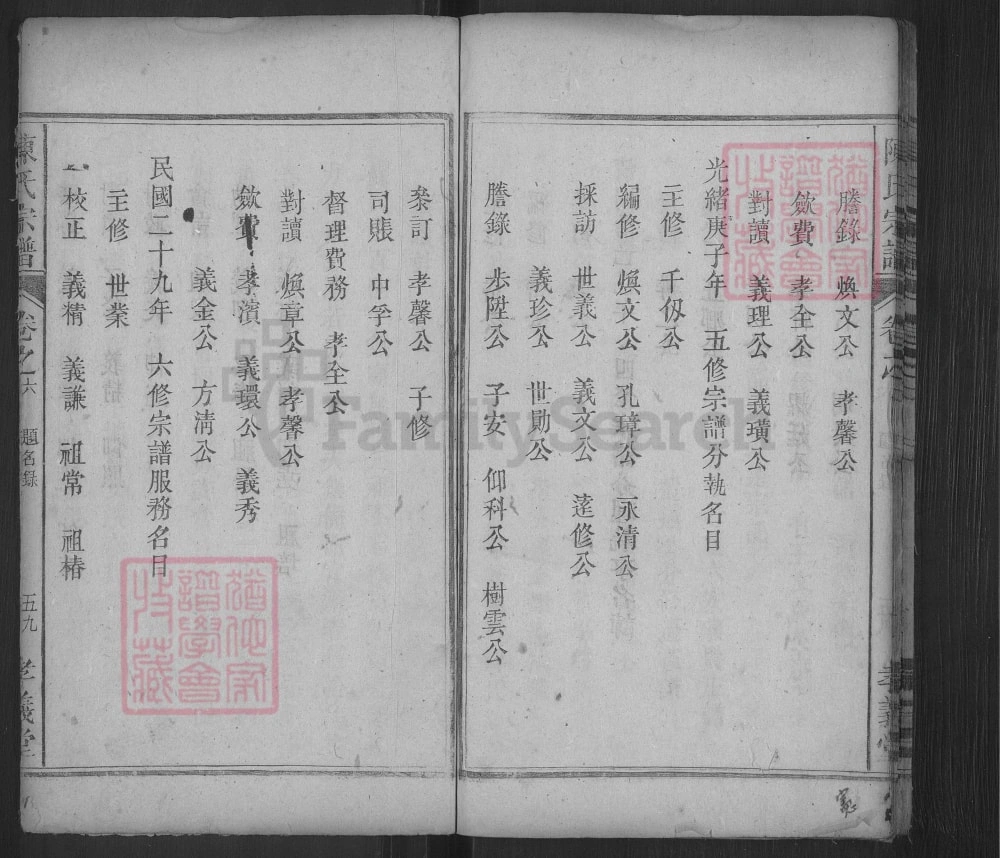 陳氏宗譜
卷之六
孝義堂
謄錄 煥文公 孝馨公
歛費 孝全公
對讀 義理公 義璜公
光緒庚子年 五修宗譜分執名目
主修 千仭公
編修 煥文公 孔璋公 永清公
採訪 世義公 義文公 遠修公
義珍公 世勛公
謄錄 步陞公 子安 仰科公 樹雲公
叅訂 孝馨公 子修
司賬 中孚公
督理費務 孝全公
對讀 煥章公 孝馨公
歛費 孝濱 義環公 義秀
義金公 方清公
民國二十九年 六修宗譜服務名目
主修 世業
校正 義精 義謙 祖常 祖椿
陳氏宗譜
卷之六
題名錄
五九
孝義堂
FamilySearch